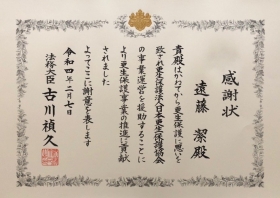 感謝状
遠藤 潔殿
貴殿はかねてから更生保護に思いを
致され更生保護法人日本更生保護協会
の事業運営を援助することに
より更生保護事業の推進に貢献
されました
よってここに謝意を表します
令和四年二月七日
法務大臣 古川禎久